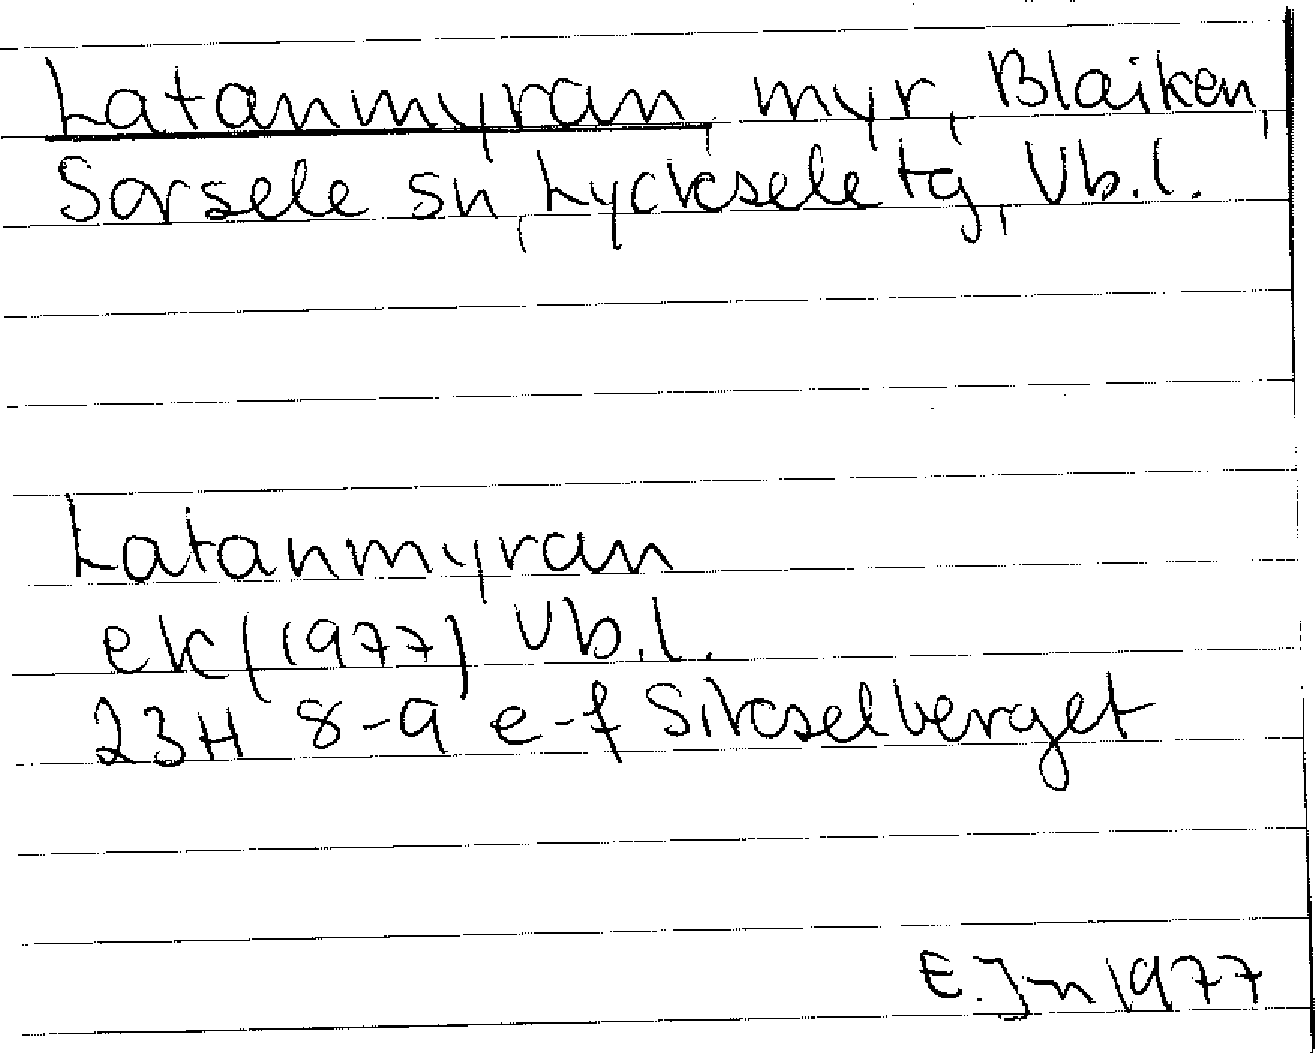 Latanmyran, myr, Blaiken,
Sorsele sn, Lycksele tg, Vb.l.
Latanmyran
ek (1977) Vb.l.
23H 8-9 e-f Sikselberget
E. Jn 1977